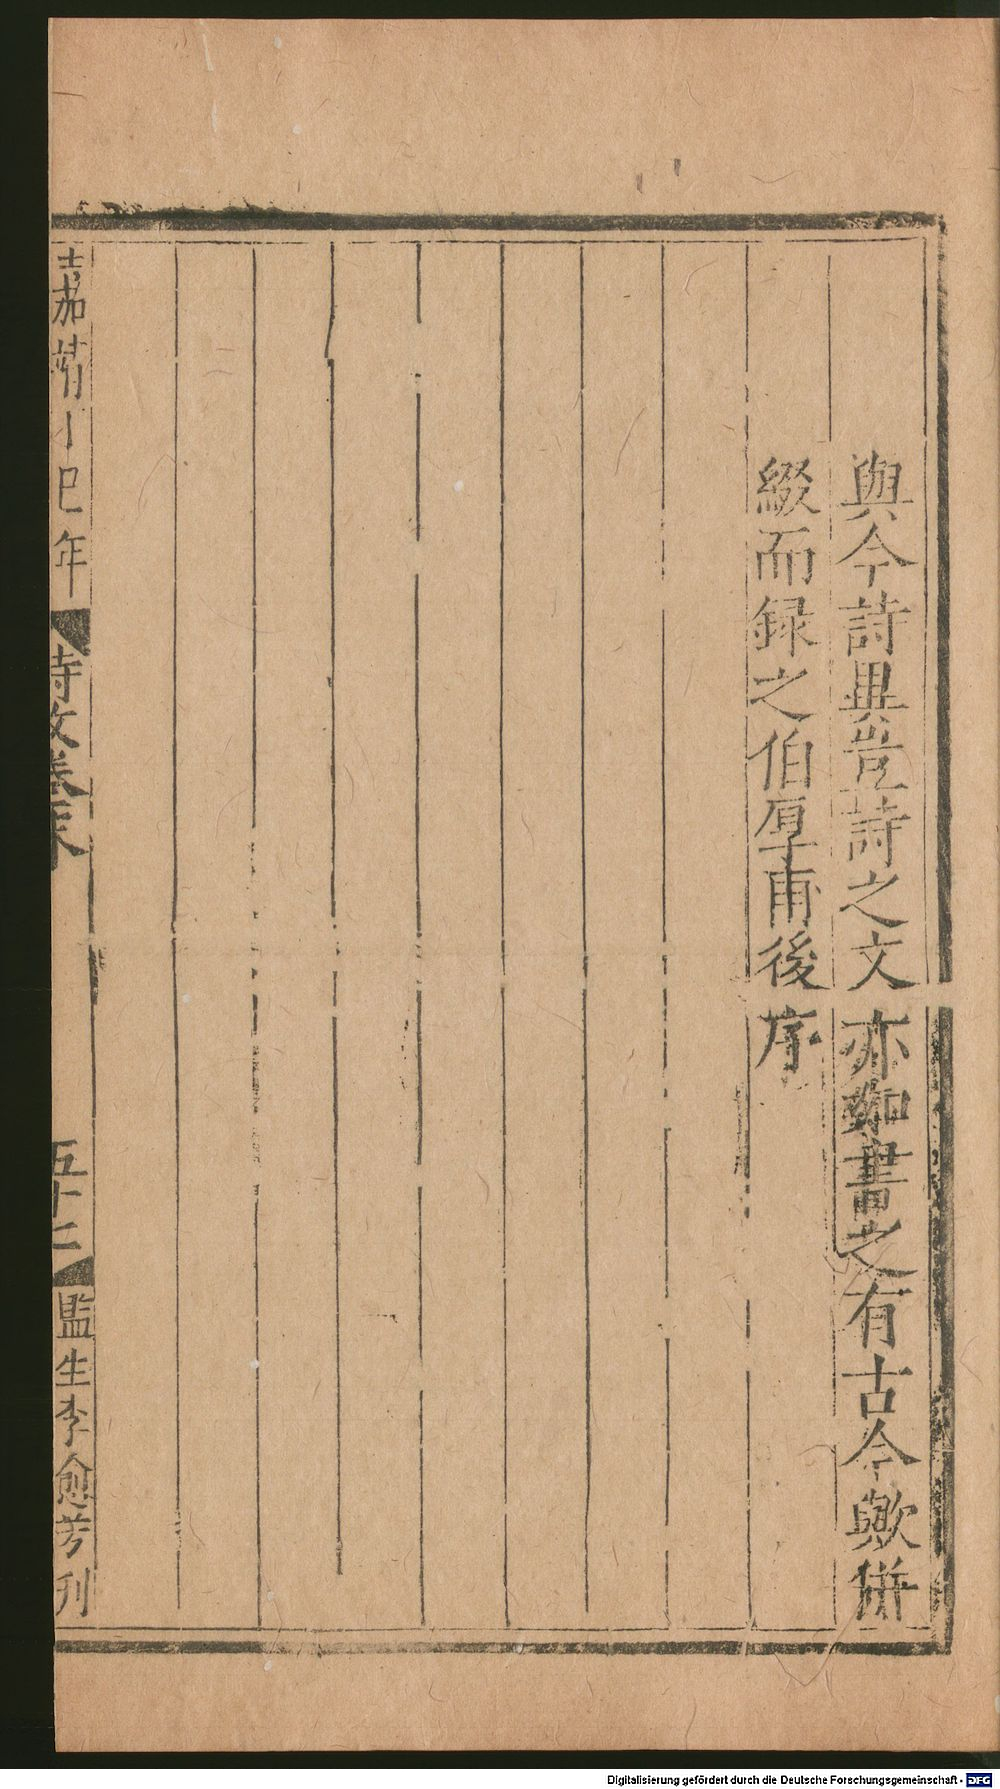 與今詩異豈詩之文亦如書之有古今歟併
綴而録之伯厚甫後序
嘉靖丁巳年
詩攷卷末
五十二
監生李愈芳刊
Digitalisierung gefördert durch die Deutsche Forschungsgemeinschaft - DFG